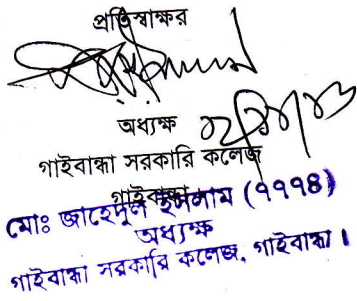 প্রতিস্বাক্ষর
অধ্যক্ষ
গাইবান্ধা সরকারি কলেজ
গাইবান্ধা
মোঃ জাহেদুল ইসলাম (৭৭৭৪)
অধ্যক্ষ
গাইবান্ধা সরকারি কলেজ, গাইবান্ধা।